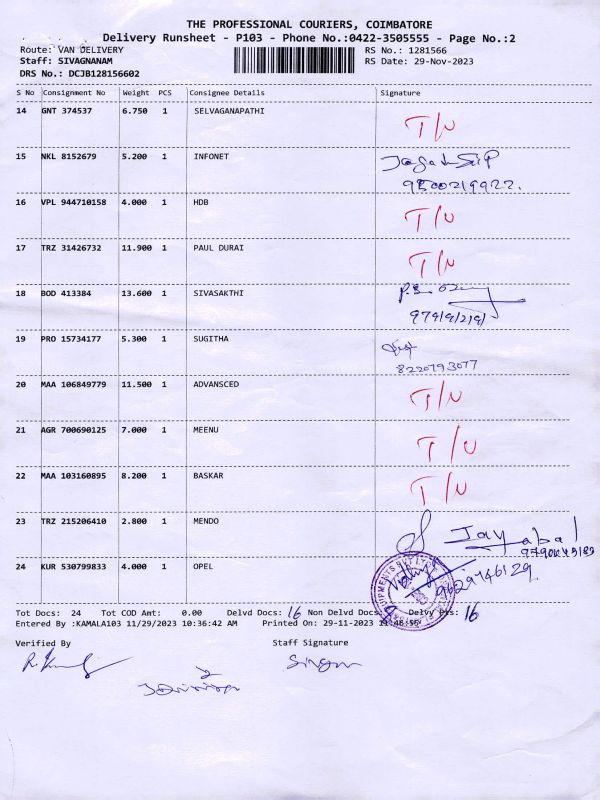 THE PROFESSIONAL COURIERS, COIMBATORE
Delivery Runsheet - P103 - Phone No.:0422-3505555 - Page No.:2
Route: VAN DELIVERY RS No.: 1281566
Staff: SIVAGNANAM RS Date: 29-Nov-2023
DRS No.: DCJB128156602
S No Consignment No Weight PCS Consignee Details Signature
14 GNT 374537 6.750 1 SELVAGANAPATHI T/N
15 NKL 8152679 5.200 1 INFONET
16 VPL 944710158 4.000 1 HDB T/N
17 TRZ 31426732 11.900 1 PAUL DURAI T/N
18 BOD 413384 13.600 1 SIVASAKTHI
19 PRO 15734177 5.300 1 SUGITHA
8220793077
20 MAA 106849779 11.500 1 ADVANSCED T/N
21 AGR 700690125 7.000 1 MEENU T/N
22 MAA 103160895 8.200 1 BASKAR T/N
23 TRZ 215206410 2.800 1 MENDO Jayabal
24 KUR 530799833 4.000 1 OPEL 9629746129.
Tot Docs: 24 Tot COD Amt: 0.00 Delvd Docs: 16 Non Delvd Docs: Delvy Pcs: 16
Entered By :KAMALA103 11/29/2023 10:36:42 AM Printed On: 29-11-2023
Verified By Staff Signature